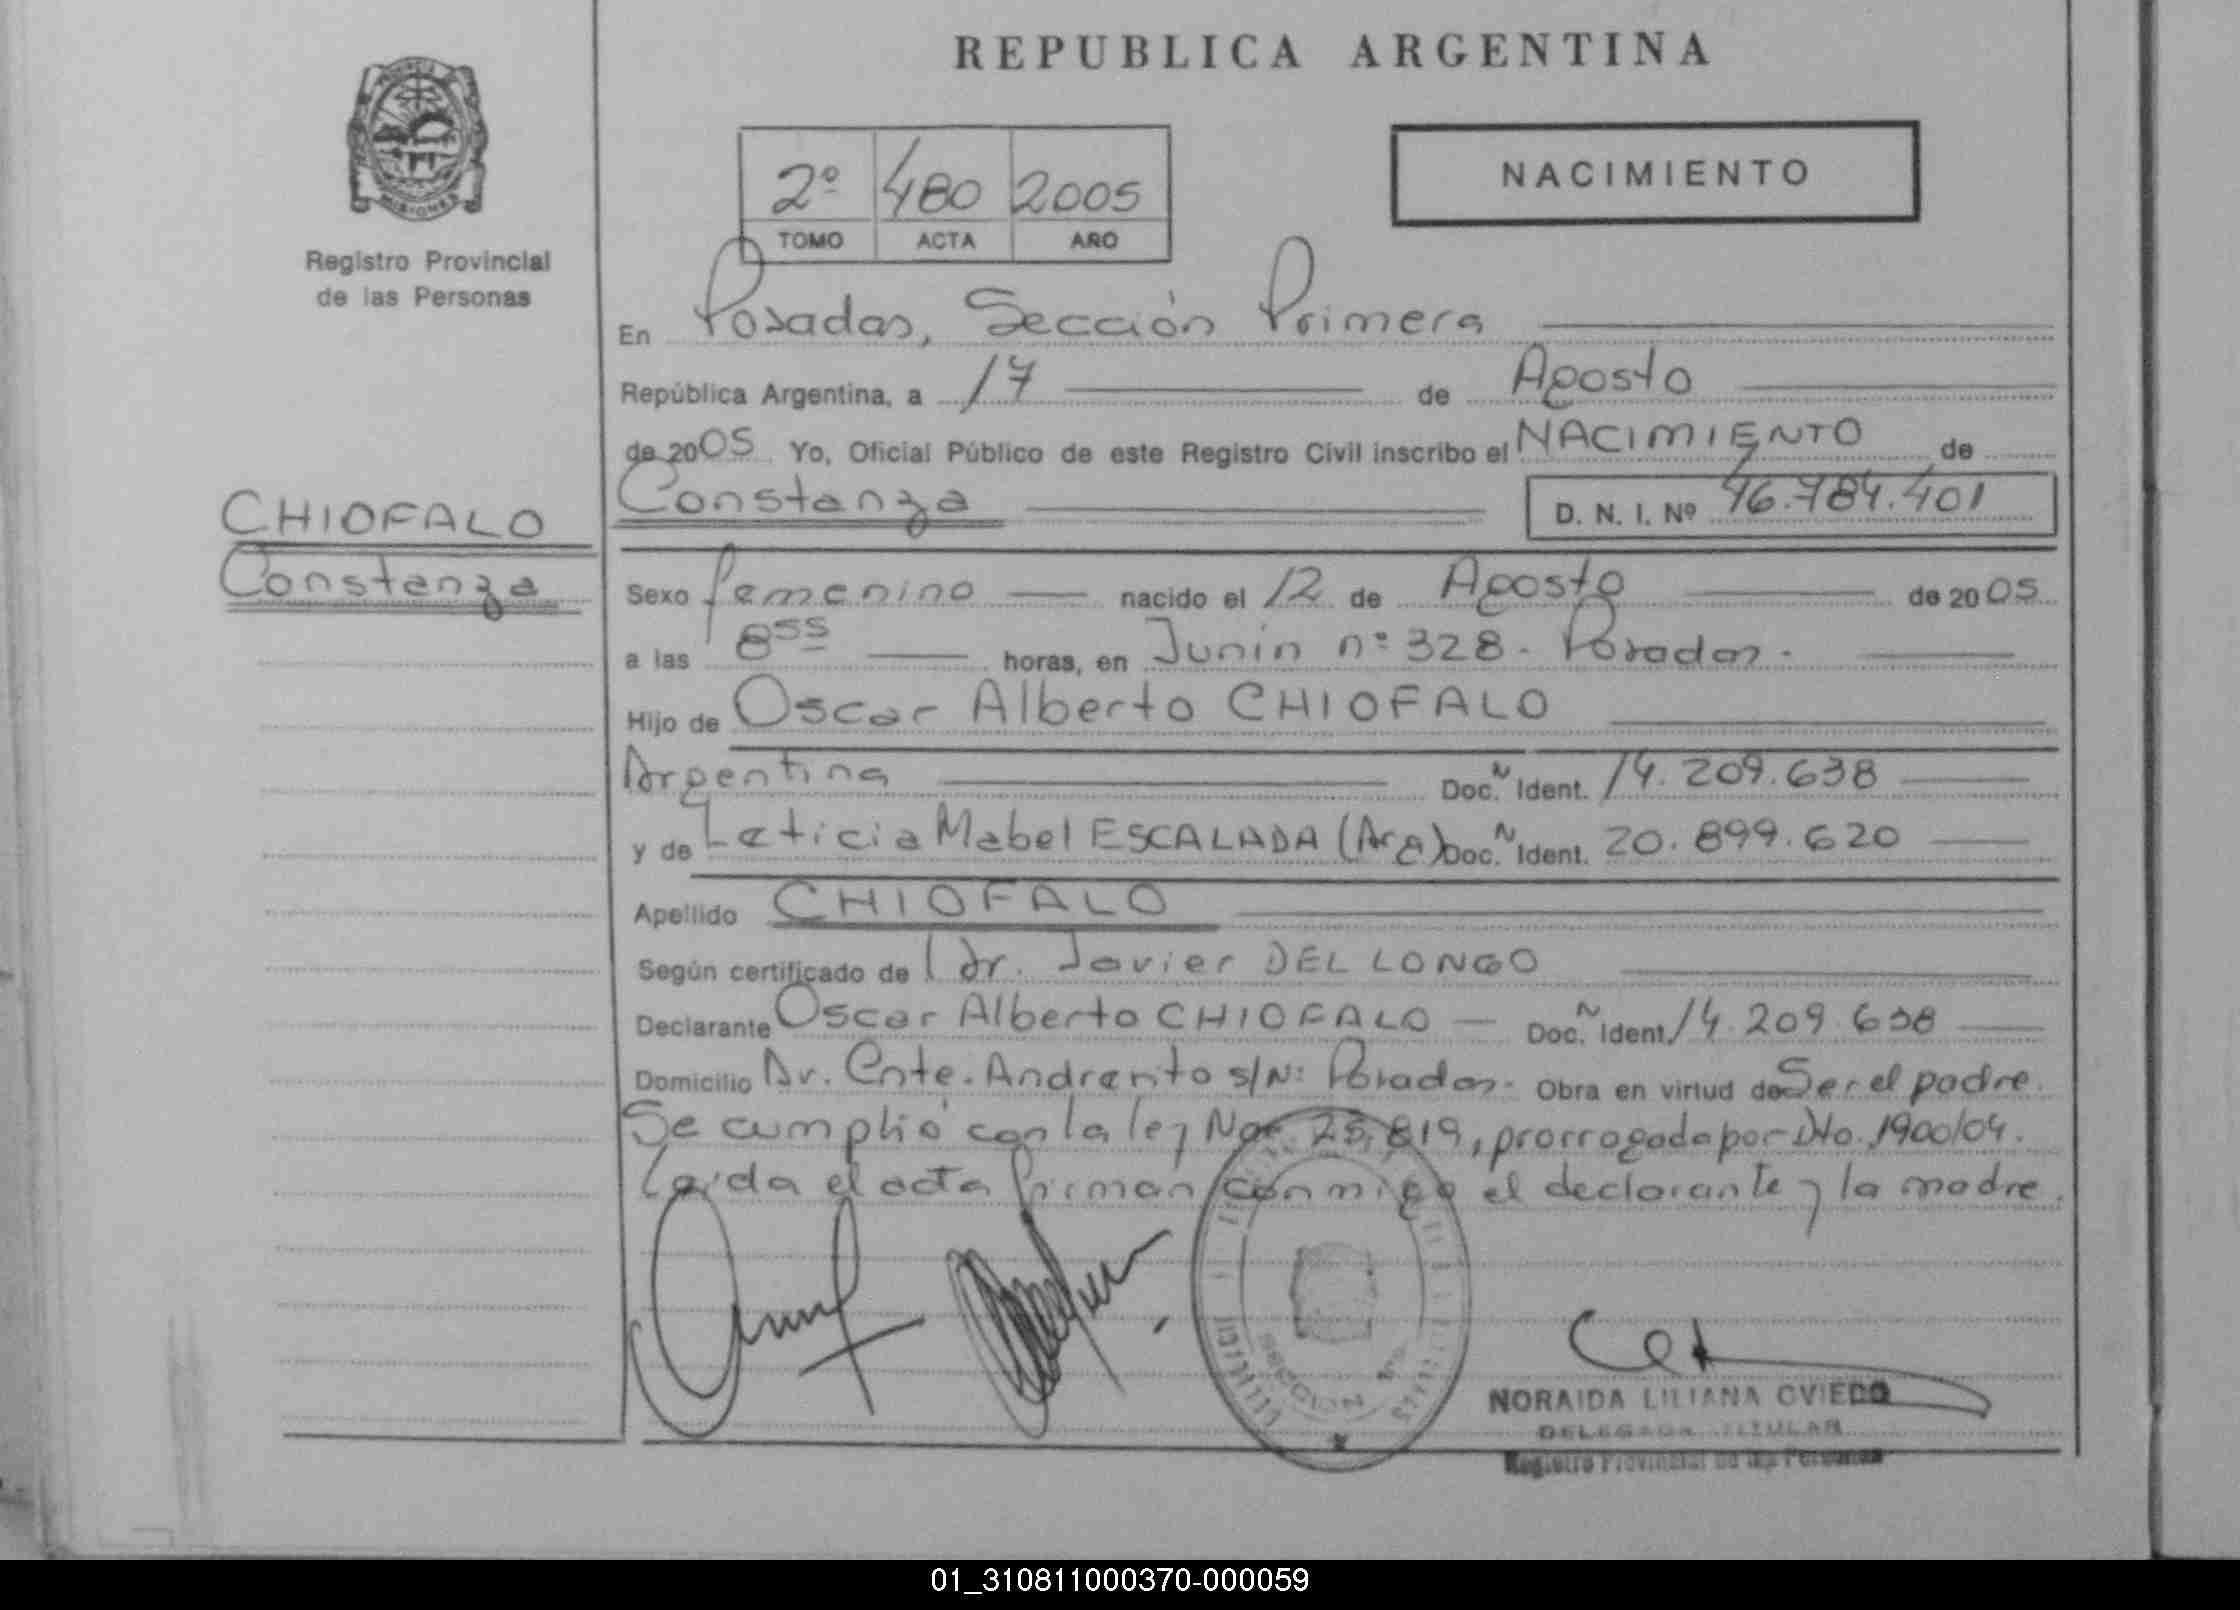 REPUBLICA ARGENTINA
NACIMIENTO
2º 480 2005
TOMO ACTA AÑO
PROVINCIA DE
MISIONES
Registro Provincial
de las Personas
En Posadas, Sección Primera
República Argentina, a 17 de Agosto
de 2005 Yo, Oficial Público de este Registro Civil inscribo el NACIMIENTO de
Constanza D. N. I. Nº 46.784.401
CHIOFALO
Constanza
Sexo femenino nacido el 12 de Agosto de 2005
a las 8 55 horas, en Junín nº 328 - Posadas -
Hijo de Oscar Alberto CHIOFALO
Argentina Doc. Ident. 14.209.638
y de Leticia Mabel ESCALADA (Arg) Doc. Ident. 20.899.620
Apellido CHIOFALO
Según certificado de Dr. Javier DEL LONGO
Declarante Oscar Alberto CHIOFALO - Doc. Ident. 14.209.638
Domicilio Av. Cnte. Andresito s/Nº Posadas - Obra en virtud de Ser el padre.
Se cumplió con la ley Nº 25.819, prorrogada por Dto. 1900/04.
Leída el acta firman conmigo el declarante y la madre.
SECCION 1ra
NORAIDA LILIANA OVIEDO
DELEGADA TITULAR
Registro Provincial de las Personas
01_310811000370-000059